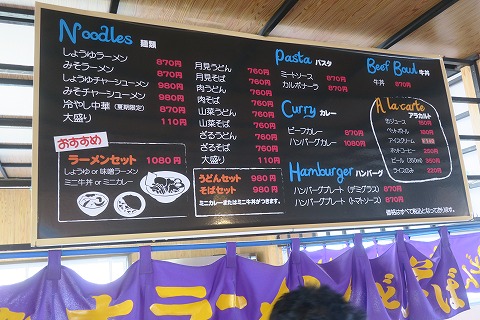 Noodles 麺類
しょうゆラーメン 870円
みそラーメン 870円
しょうゆチャーシューメン 980円
みそチャーシューメン 980円
冷やし中華(夏期限定) 870円
大盛り 110円
月見うどん 760円
月見そば 760円
肉うどん 760円
肉そば 760円
山菜うどん 760円
山菜そば 760円
ざるうどん 760円
ざるそば 760円
大盛り 110円
おすすめ
ラーメンセット 1080円
しょうゆ or 味噌ラーメン
ミニ牛丼 or ミニカレー
うどんセット 980円
そばセット 980円
ミニカレーまたはミニ牛丼がつきます。
Pasta パスタ
ミートソース 870円
カルボナーラ 870円
Curry カレー
ビーフカレー 870円
ハンバーグカレー 1080円
Hamburger ハンバーグ
ハンバーグプレート(デミグラス) 870円
ハンバーグプレート(トマトソース) 870円
Beef Bowl 牛丼
牛丼 870円
A la carte
アラカルト
缶ジュース 150円
ペットボトル 180円
アイスクリーム
ホットコーヒー 250円
ビール(350ml) 350円
ライスのみ 220円
価格はすべて税込となっております。
ラーメン うどん そば